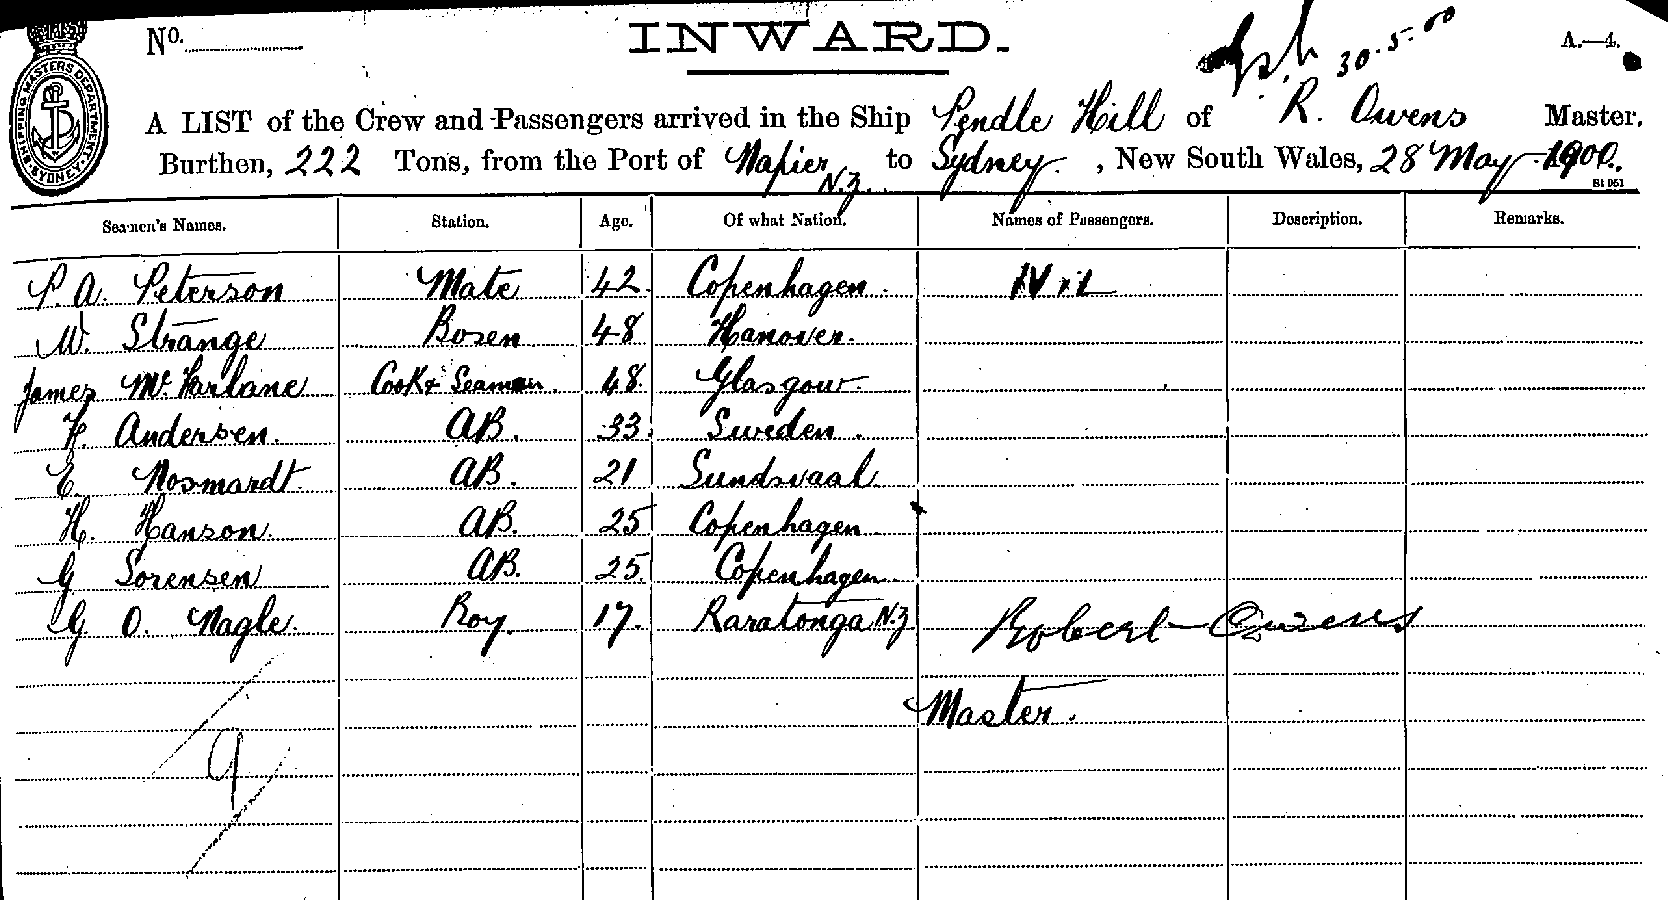 No. INWARD. 30.5.00 A.—4.
SHIPPING MASTERS DEPARTMENT SYDNEY
A LIST of the Crew and Passengers arrived in the Ship Pendle Hill of R. Owens Master,
Burthen, 222 Tons, from the Port of Napier N.Z. to Sydney, New South Wales, 28 May 1900.
St D51
Seamen's Names. Station. Age. Of what Nation. Names of Passengers. Description. Remarks.
P. A. Peterson Mate 42. Copenhagen. Nil
W. Strange Bosen 48 Hanover.
James McFarlane Cook & Seaman. 48. Glasgow.
H. Andersen. AB. 33. Sweden.
E. Nosmardt. AB. 21 Sundsvaal
H. Hanson. AB. 25 Copenhagen
G. Sorensen AB. 25. Copenhagen.
G. O. Nagle. Boy. 17. Raratonga N.Z. Robert Owens
Master.
9